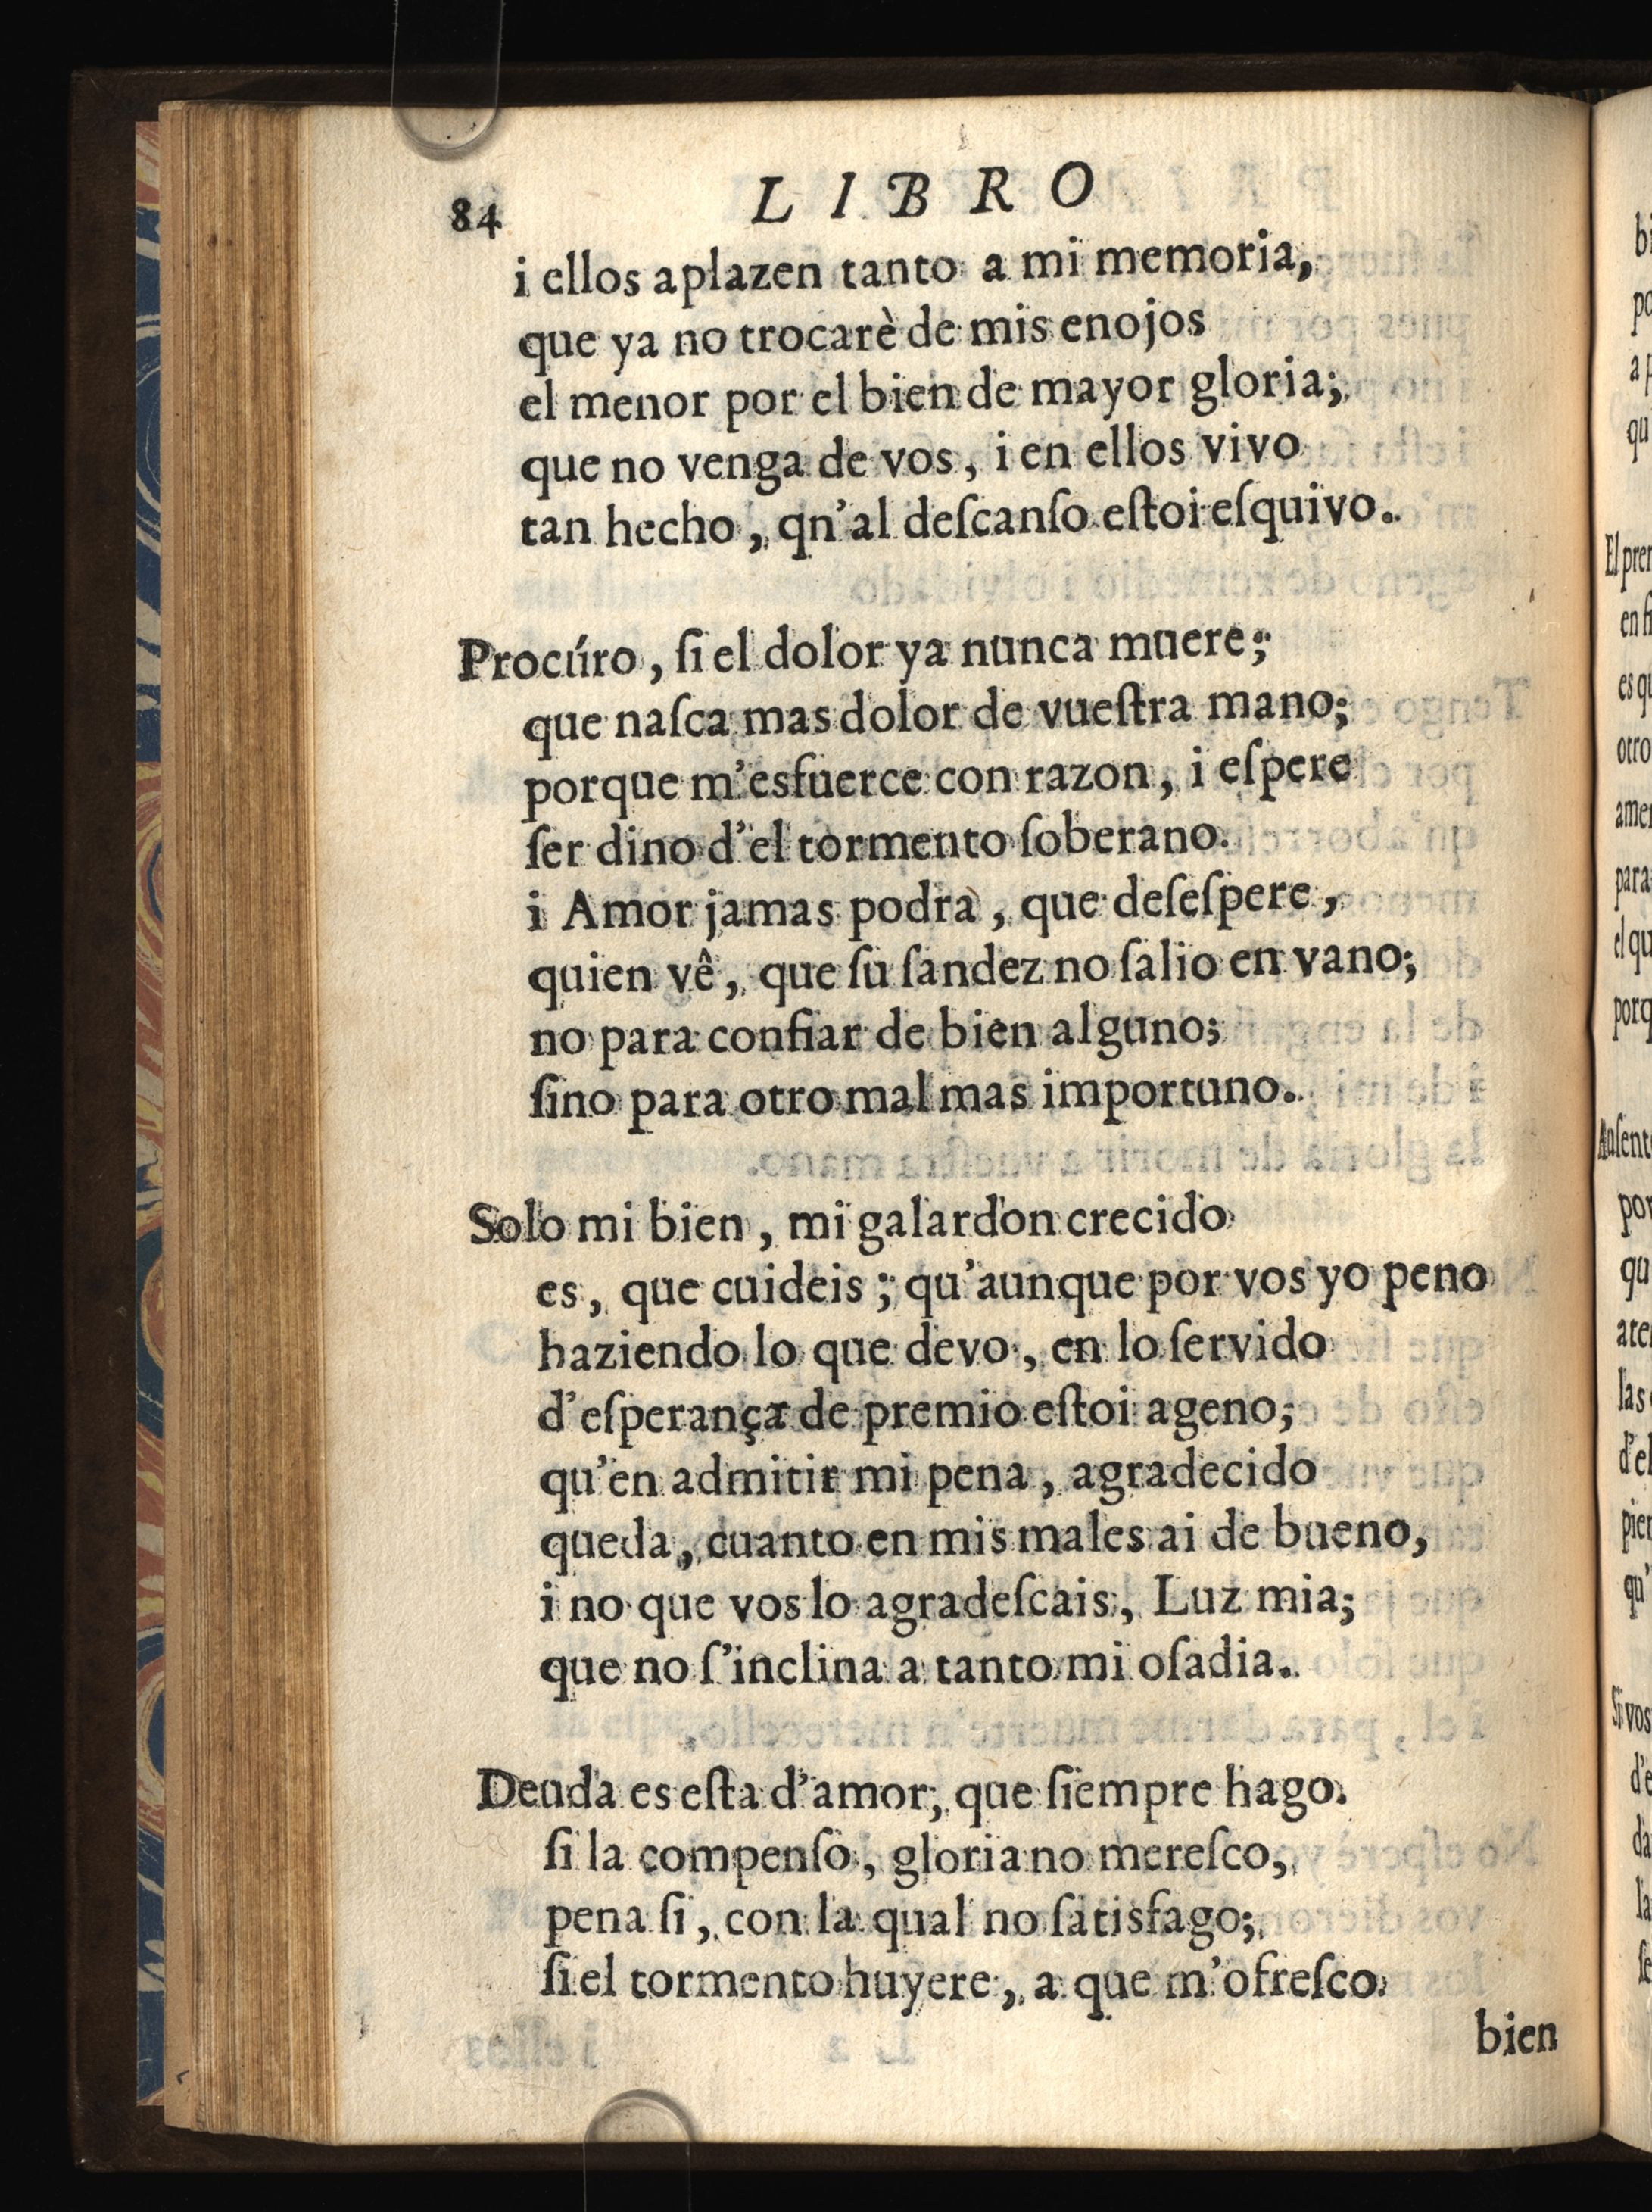 84 LIBRO
i ellos aplazen tanto a mi memoria,
que ya no trocarè de mis enojos
el menor por el bien de mayor gloria;
que no venga de vos, i en ellos vivo
tan hecho, qn'al deſcanſo eſtoi eſquivo.
Procúro, ſi el dolor ya nunca muere;
que naſca mas dolor de vueſtra mano;
porque m'esfuerce con razon, i eſpere
ſer dino d'el tormento ſoberano.
i Amor jamas podrà, que deſeſpere,
quien vê, que ſu ſandez no ſalio en vano;
no para confiar de bien alguno;
ſino para otro mal mas importuno.
Solo mi bien, mi galardon crecido
es, que cuideis; qu'aunque por vos yo peno
haziendo lo que devo, en lo ſervido
d'eſperança de premio eſtoi ageno;
qu'en admitir mi pena, agradecido
queda, cuanto en mis males ai de bueno,
i no que vos lo agradeſcais, Luz mia;
que no ſ'inclina a tanto mi oſadia.
Deuda es eſta d'amor, que ſiempre hago.
ſi la compenſo, gloria no mereſco,
pena ſi, con la qual no ſatisfago;
ſi el tormento huyere, a que m'ofreſco
bien